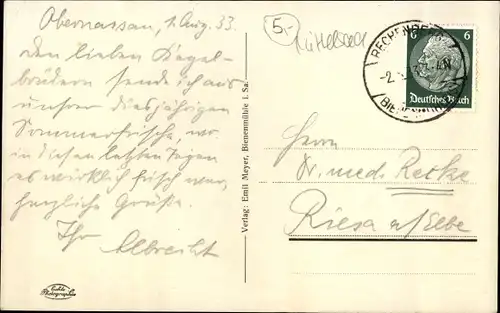 Obernassau, 1. Aug. 33.
Den lieben Kegel-
brüdern sende ich aus
unsrer diesjährigen
Sommerfrische, wo
in diesen letzten Tagen
es wirklich frisch war,
herzliche Grüße.
Ihr Albrecht
Echte
Photographie
Verlag: Emil Meyer, Bienenmühle i. Sa.
5,-
RECHENBERG
-2.
BIENENMÜHLE
6 6
Deutsches Reich
Herrn
Dr. med. Retke
Riesa a/Elbe